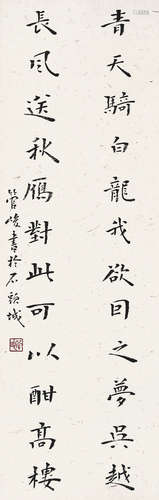 青天騎白龍我欲因之夢吳越
長風送秋鴈對此可以酣高樓
管峻書於石頭城